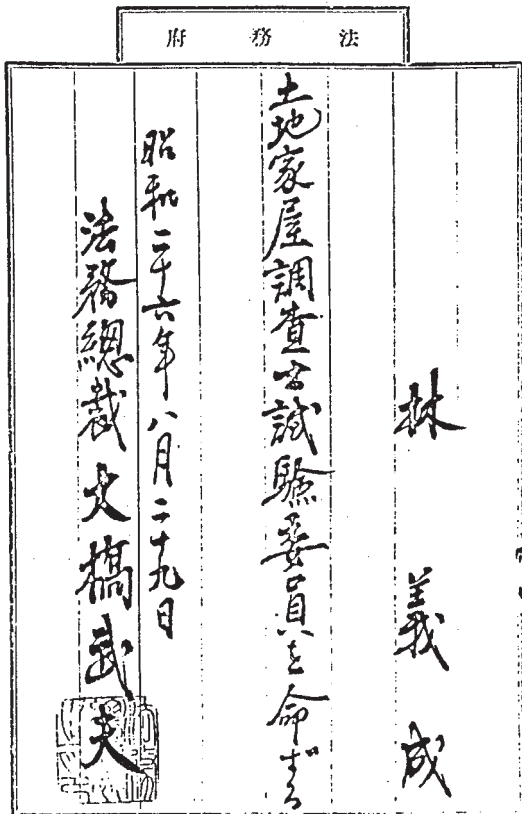 法務府
林義成
土地家屋調査士試験委員を命ずる
昭和二十六年八月二十九日
法務總裁大橋武夫